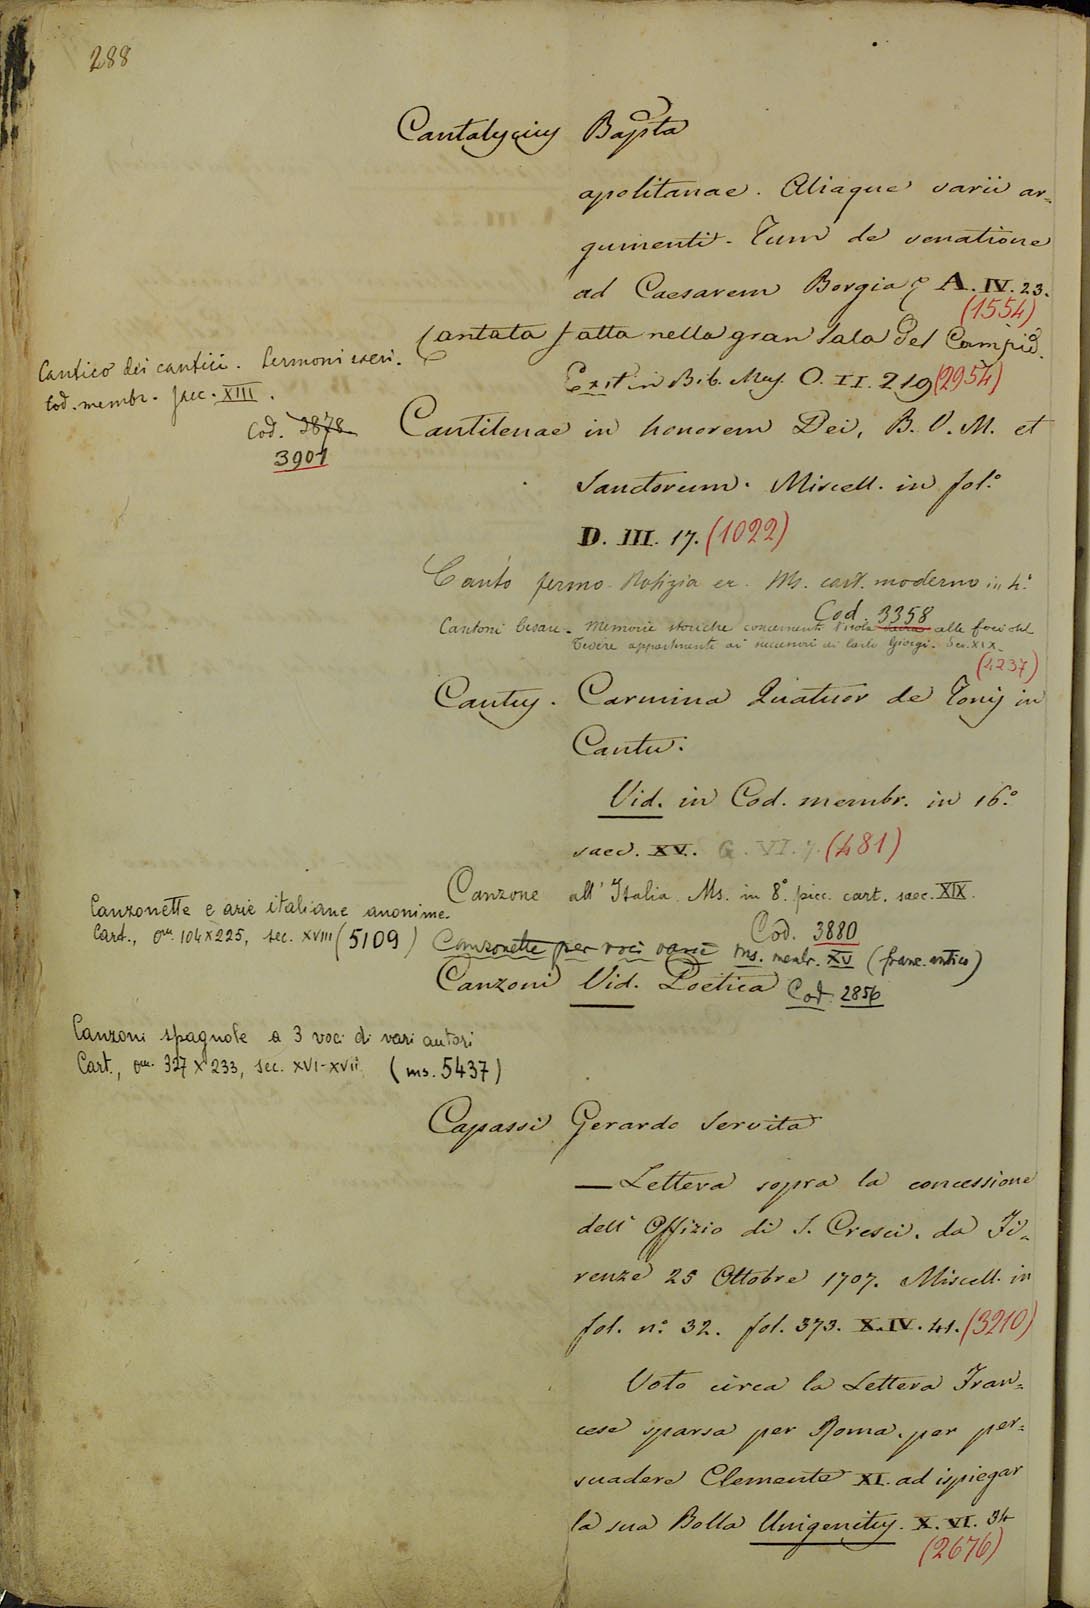 288
Cantalycius Bapta
apolitanae. Aliaque varii ar-
gumenti. Tum de venatione
ad Caesarem Borgia A. IV. 23.
(1554)
Cantata fatta nella gran Sala del Campid.
Exst in Bib. Maj. O. II. 219 (2954)
Cantico dei cantici. Sermoni sacri.
Cod. membr. saec. XIII.
Cod. 3878
3901
Cantilenae in honorem Dei, B. V. M. et
Sanctorum. Miscell. in fol.º
D. III. 17. (1022)
Canto fermo. Notizia Ms. cart. moderno in 4.º
Cod. 3358
Cantoni Cesare. Memorie storiche concernenti l'isola sacra alle foci del
Tevere appartenente ai successori di Carlo Giorgi. Sec. XIX.
(4237)
Cantus. Carmina Quatuor de Tonis in
Cantu.
Vid. in Cod. membr. in 16.º
saec. XV. G. VI. 7. (481)
Canzone all'Italia. Ms. in 8.º picc. cart. saec. XIX.
Cod. 3880
Canzonette e arie italiane anonime.
Cart., mm. 104x225, sec. XVIII (5109)
Canzonette per voci varie ms. membr. XV (franc. antico)
Canzoni Vid. Poetica Cod. 2856
Canzoni spagnole a 3 voci di vari autori
Cart., mm. 327x233, sec. XVI-XVII (ms. 5437)
Capassi Gerardo Servita
— Lettera sopra la concessione
dell' Offizio di S. Cresci. da Fi-
renze 25 Ottobre 1707. Miscell. in
fol. n.º 32. fol. 373. X. IV. 41. (3210)
Voto circa la Lettera Fran-
cese sparsa per Roma, per per-
suadere Clemente XI. ad ispiegar
la sua Bolla Unigenitus. X. VI. 34
(2676)